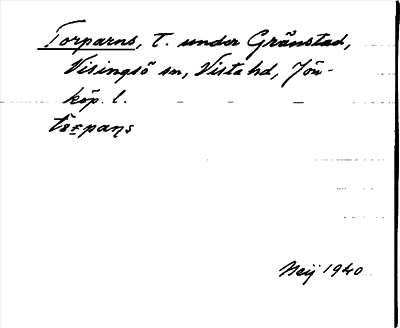 Torparns, T. under Gränstad,
Visingsö sn, Vista hd, Jön-
köp. l.
Neij 1940